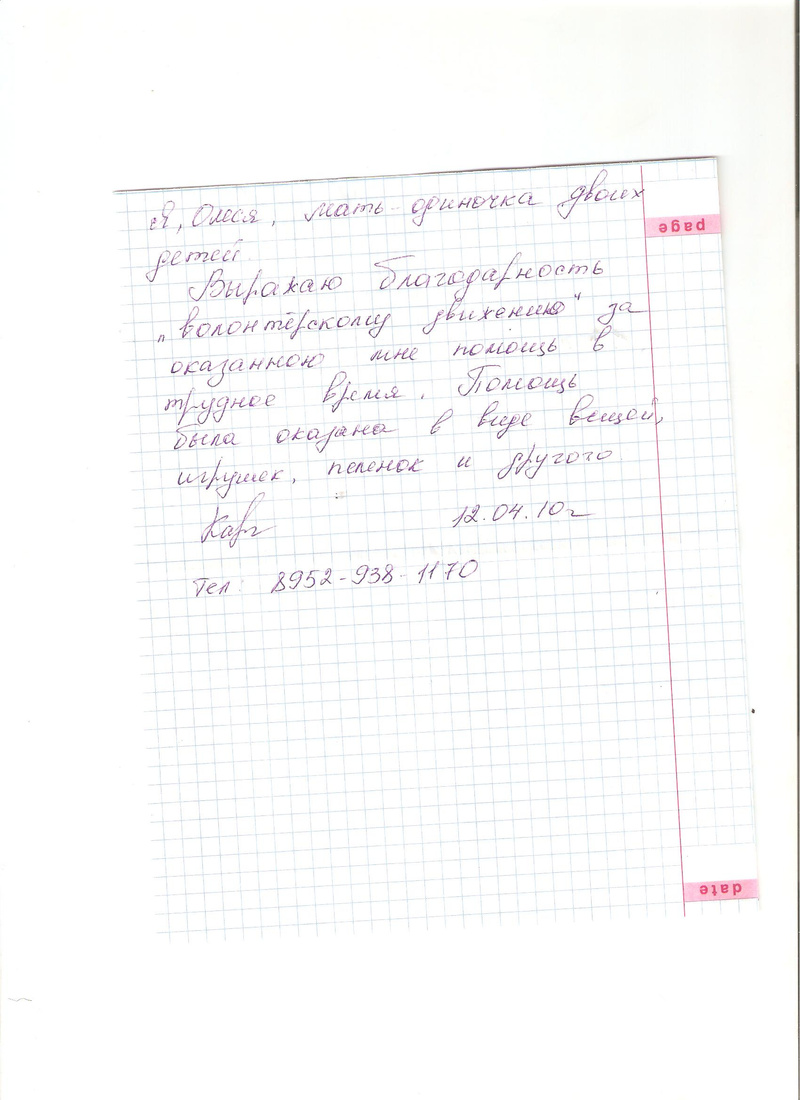 Я, Олеся, мать-одиночка двоих
page
детей.
Выражаю благодарность
„волонтёрскому движению" за
оказанною мне помощь в
трудное время. Помощь
была оказана в виде вещей,
игрушек, пеленок и другого
12.04.10г
Тел: 8952-938-1170
date